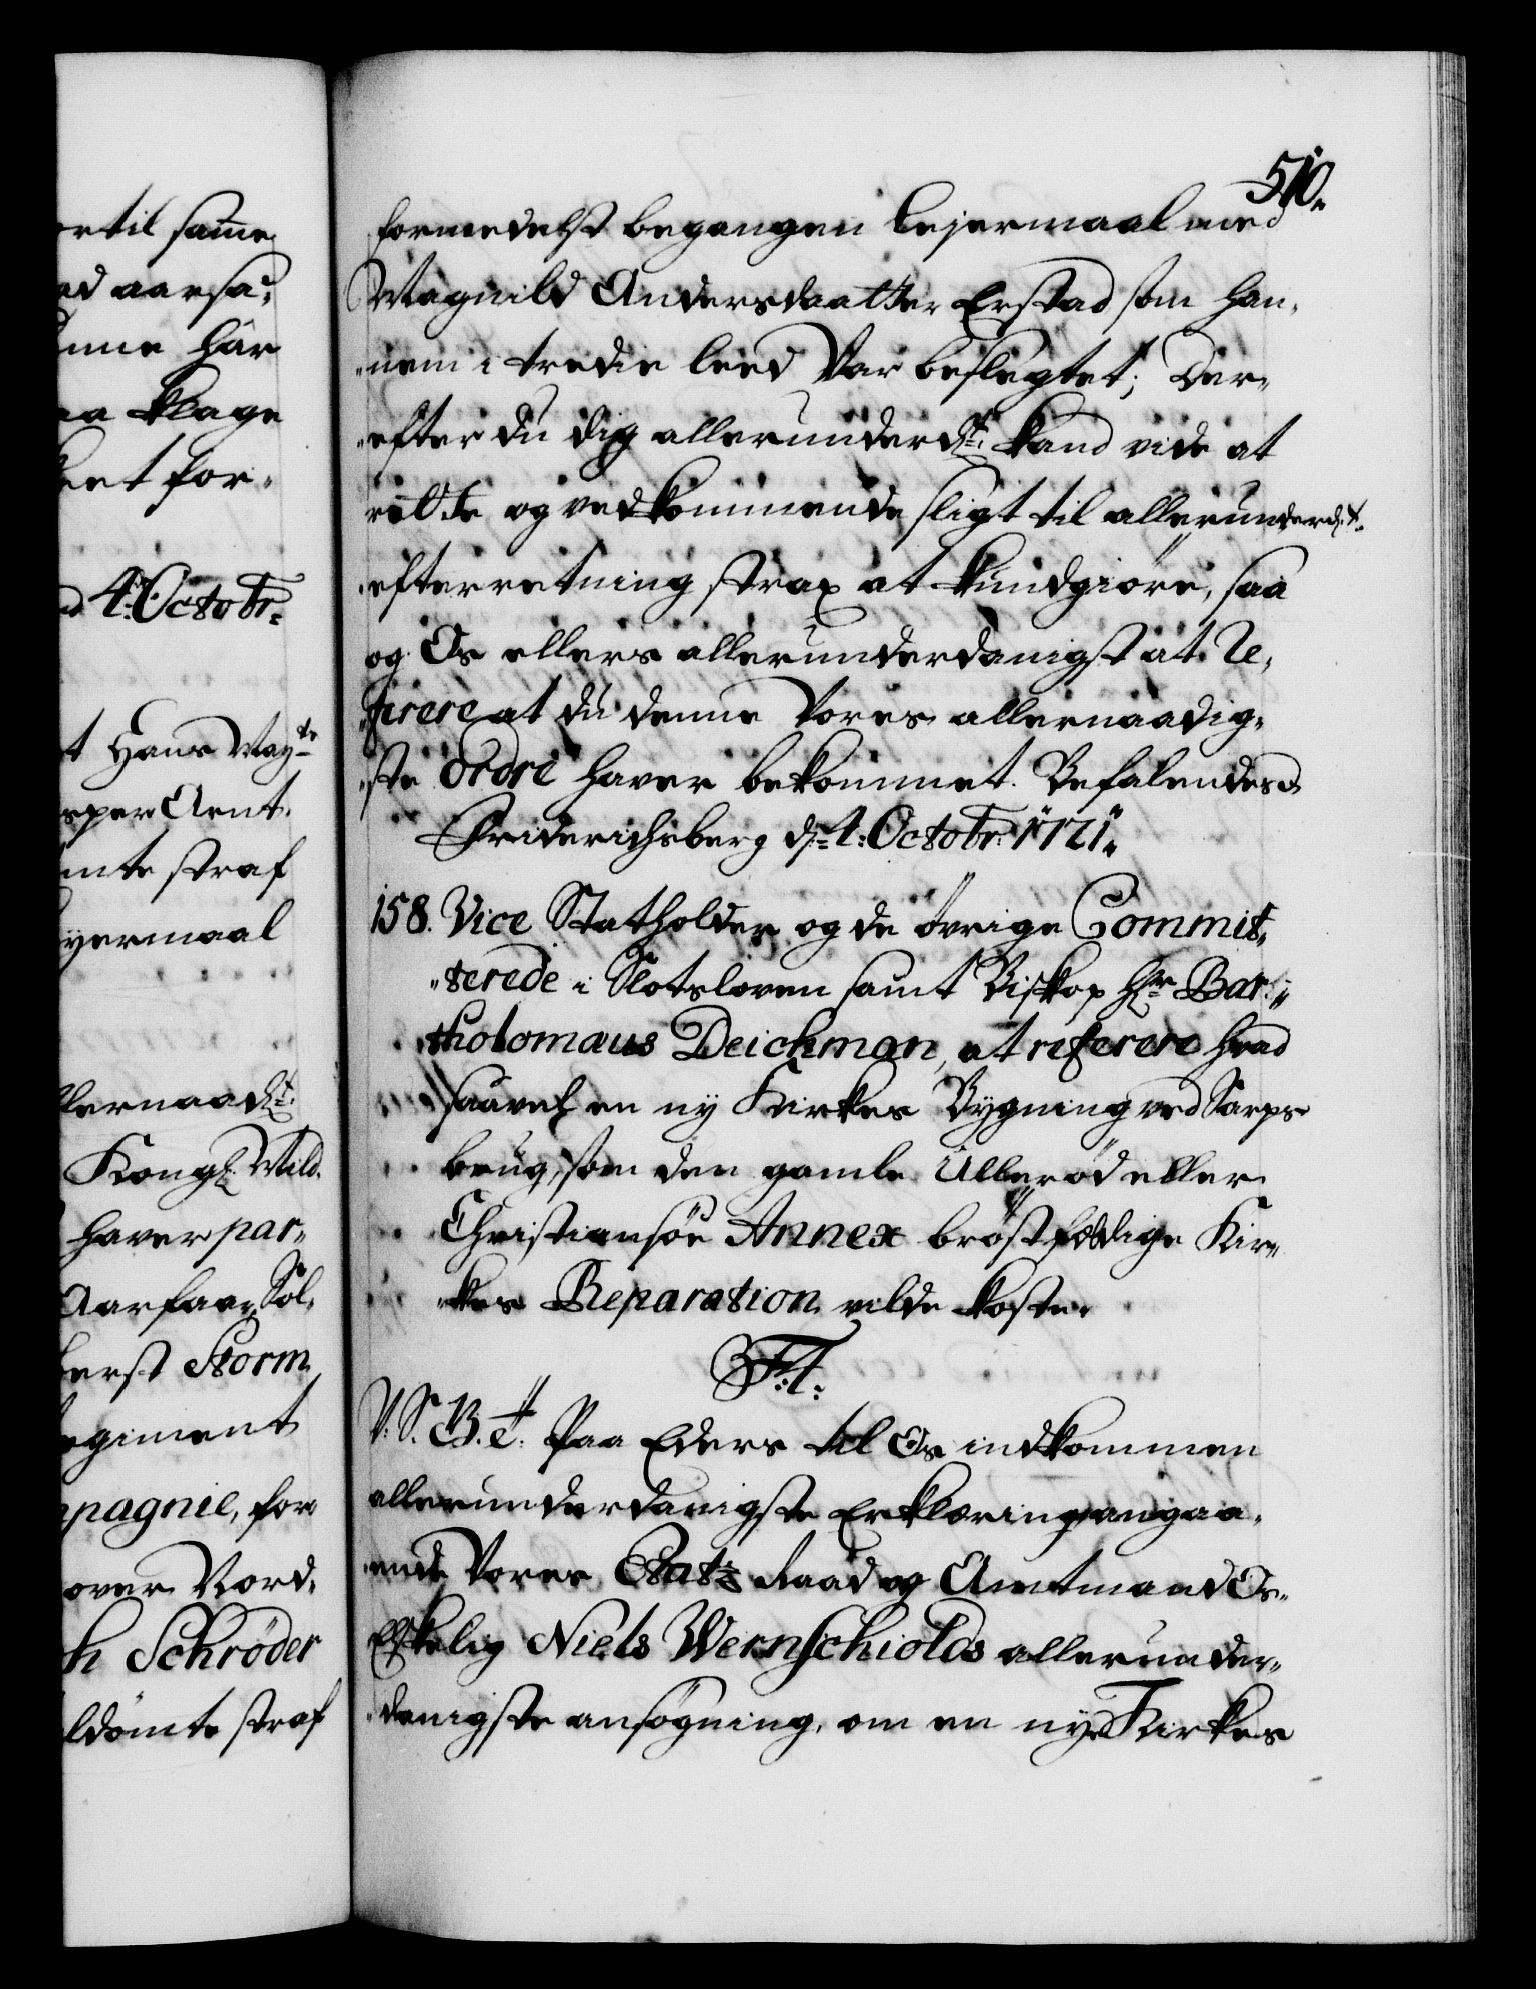 510.
ertil same
ad aarsa¬
inne här
aa klage
eet for¬
d 4: Octobr:
t Hans May:ts
sper Arnt.
mte straf
yermaal
llernaad:st
Kongl: Mild.
haver par¬
Aarsaar, Sol¬
berst Storm
egiment
pagnie, for
over Nord¬
h Schröder
ldömte straf
formedelst begangen lejermaal med
Magnild Andersdaatter Erstad som han¬
nem i tredie leed Var beslegtet; Der¬
efter du dig allerunderd:st kand vide at
rette og vedkommende sligt til allerunderd:st
efterretning strax at kundgiöre, saa
og Os ellers allerunderdanigst at Re¬
ferere at du denne Vores allernaadig¬
ste Ordre haver bekommet. Befalendes
Friderichsberg d: 4: Octobr: 1721.
158. Vice Statholder og de övrige Commit¬
terede i Slotsloven samt Biskop Hr Bar¬
tholomæus Deichman, at referere hvad
saavel en ny Kirkes Bygning ved Sarps¬
brug, som den gamle Ulleröd eller
Christiansöe Annex bröstfældige Kir¬
kes Reparation vilde koste.
F: 4:
V: S. B. et Paa Eders til Os indkommen
allerunderdanigste Erklæring angaa¬
ende Vores Etatz Raad og Amtmand Os
Elskelig Niels Wernschiolds allerunder¬
danigste ansögning, om en nye Kirkes